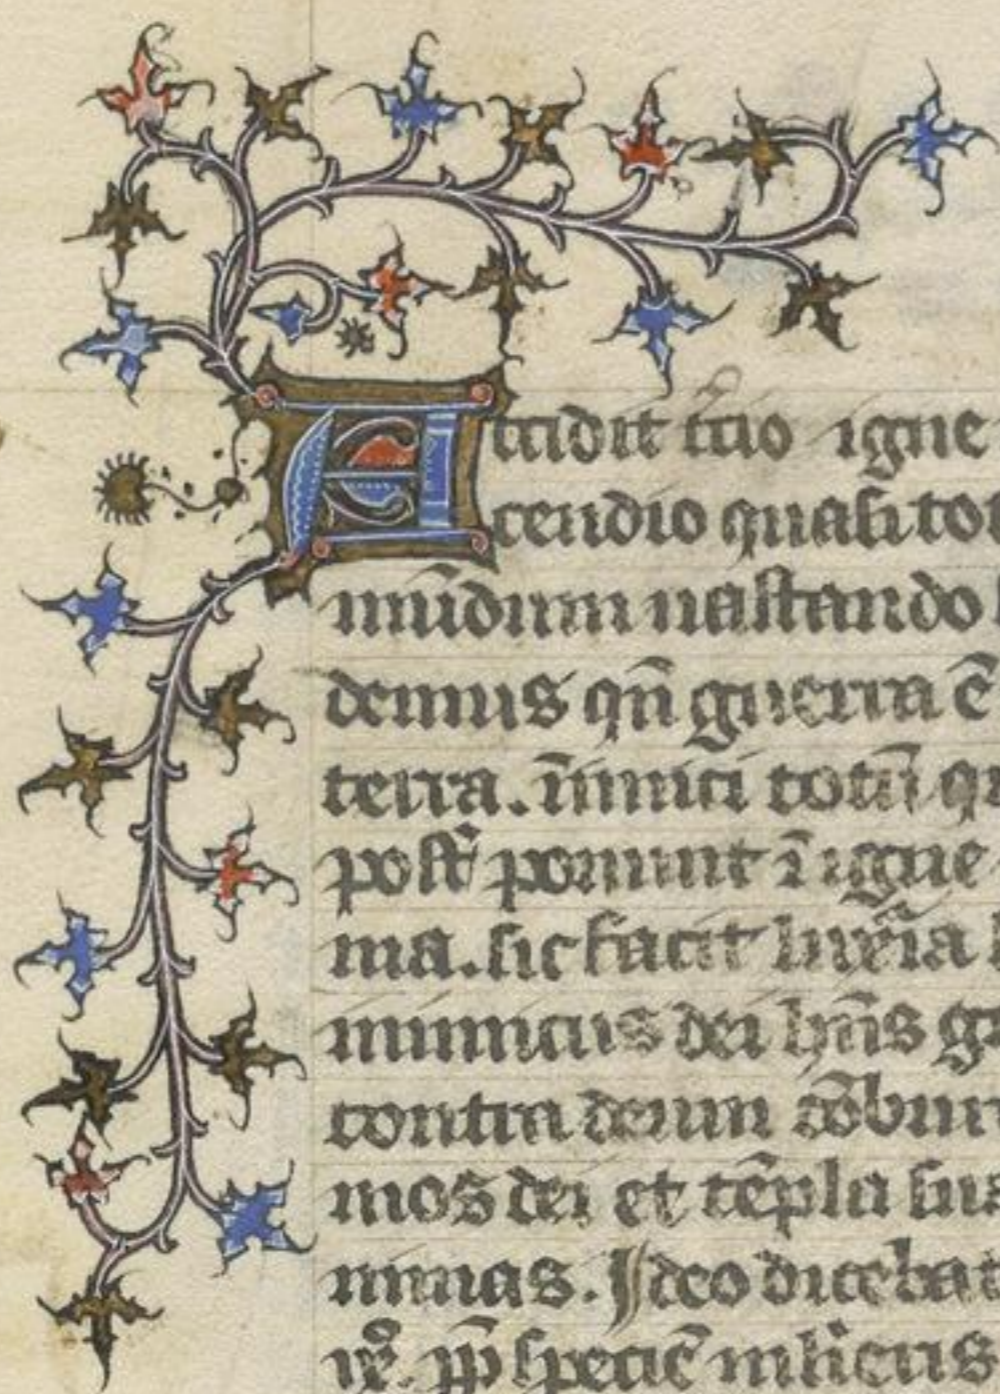 Accidit tcio igne
cendio quasi tot
mūdum uastando
demus qn̄ guerra ē
terra. īimici totū qu
post ponunt ī igne
ma. sic facit
inimicus dei
contra deum
mos dei et tēpla sua
minas. Ideo dicebat
pp̄ speciē mlieris